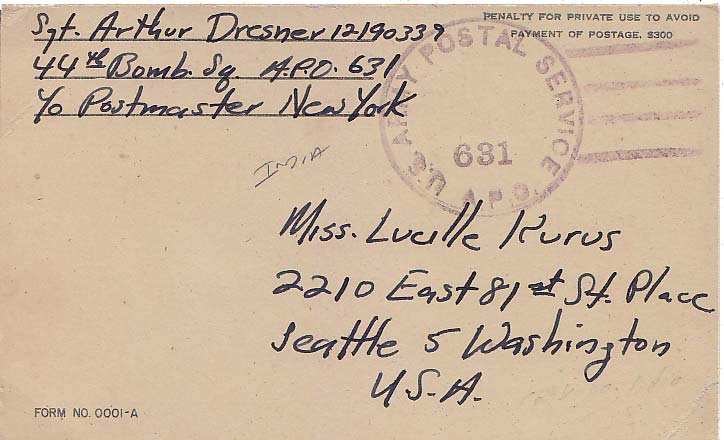 Sgt. Arthur Dresner 12190339
44th Bomb. Sq. A.P.O. 631
c/o Postmaster New York
PENALTY FOR PRIVATE USE TO AVOID
PAYMENT OF POSTAGE, $300
U.S. ARMY POSTAL SERVICE
631
A.P.O.
INDIA
Miss. Lucille Kurus
2210 East 81st St. Place
Seattle 5 Washington
U.S.A.
FORM NO. 0001-A